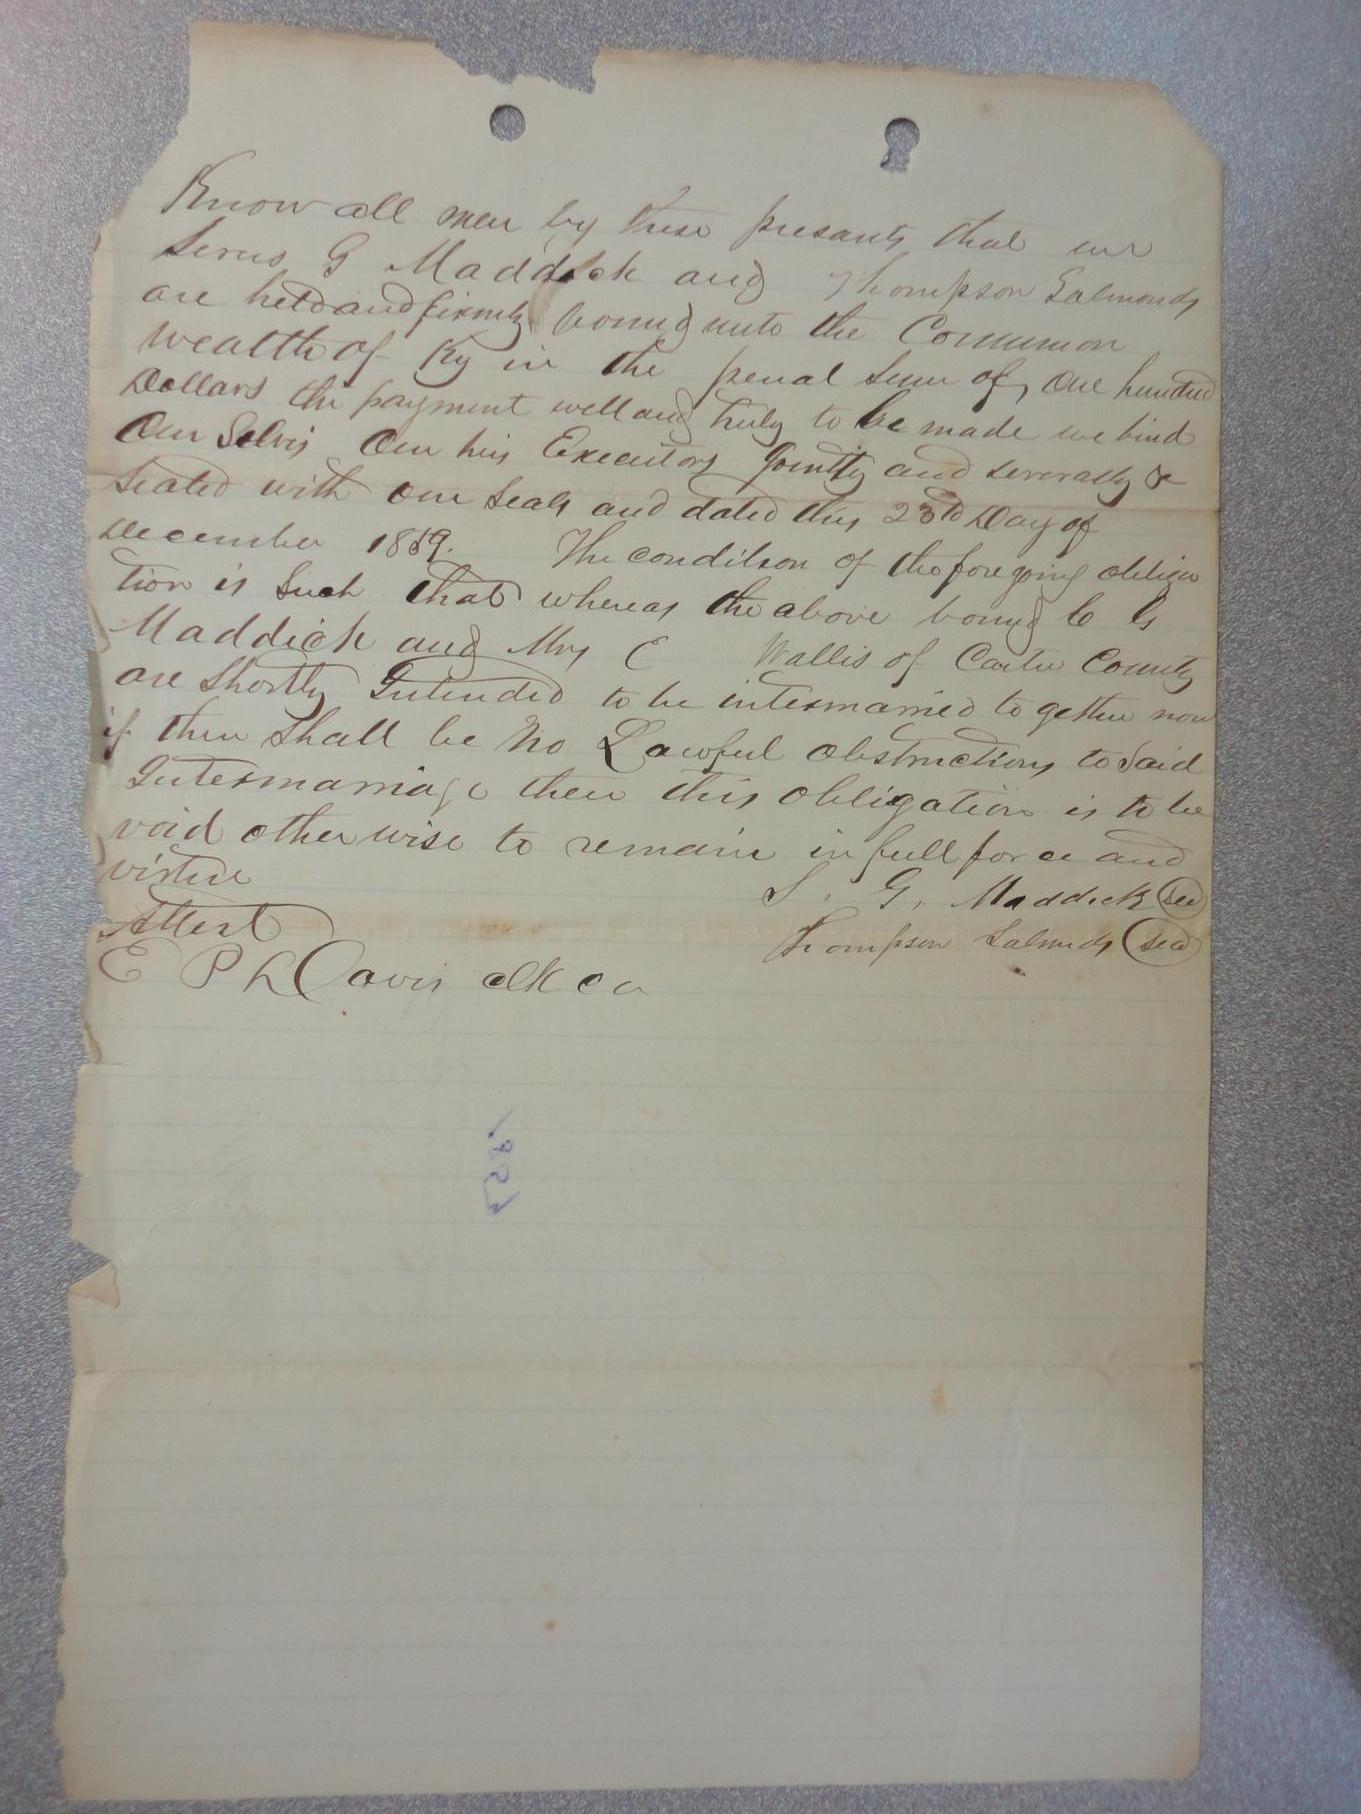 Know all men by these presants that we
Sirus G Maddick and Thompson Salmonds
are held and firmly bound unto the Common
wealth of Ky in the penal Sum of, One hundred
Dollars the payment well and truly to be made we bind
Our Selvs Our hirs Executors Jointly and severally &
Sealed with our Seals and dated this 23rd Day of
December 1859. The condition of the foregoing obliga
tion is Such that whereas the above bound G
Maddick and Mrs E Wallis of Carter County
are Shortly Intended to be intermarried to gether now
if there Shall be No Lawful obstructions to Said
Intermarriage then this obligation is to be
void other wise to remain in full force and
virtue
S. G. Maddick (Seal)
Attest
Thompson Salmnds (Seal)
E P L Davis clk co